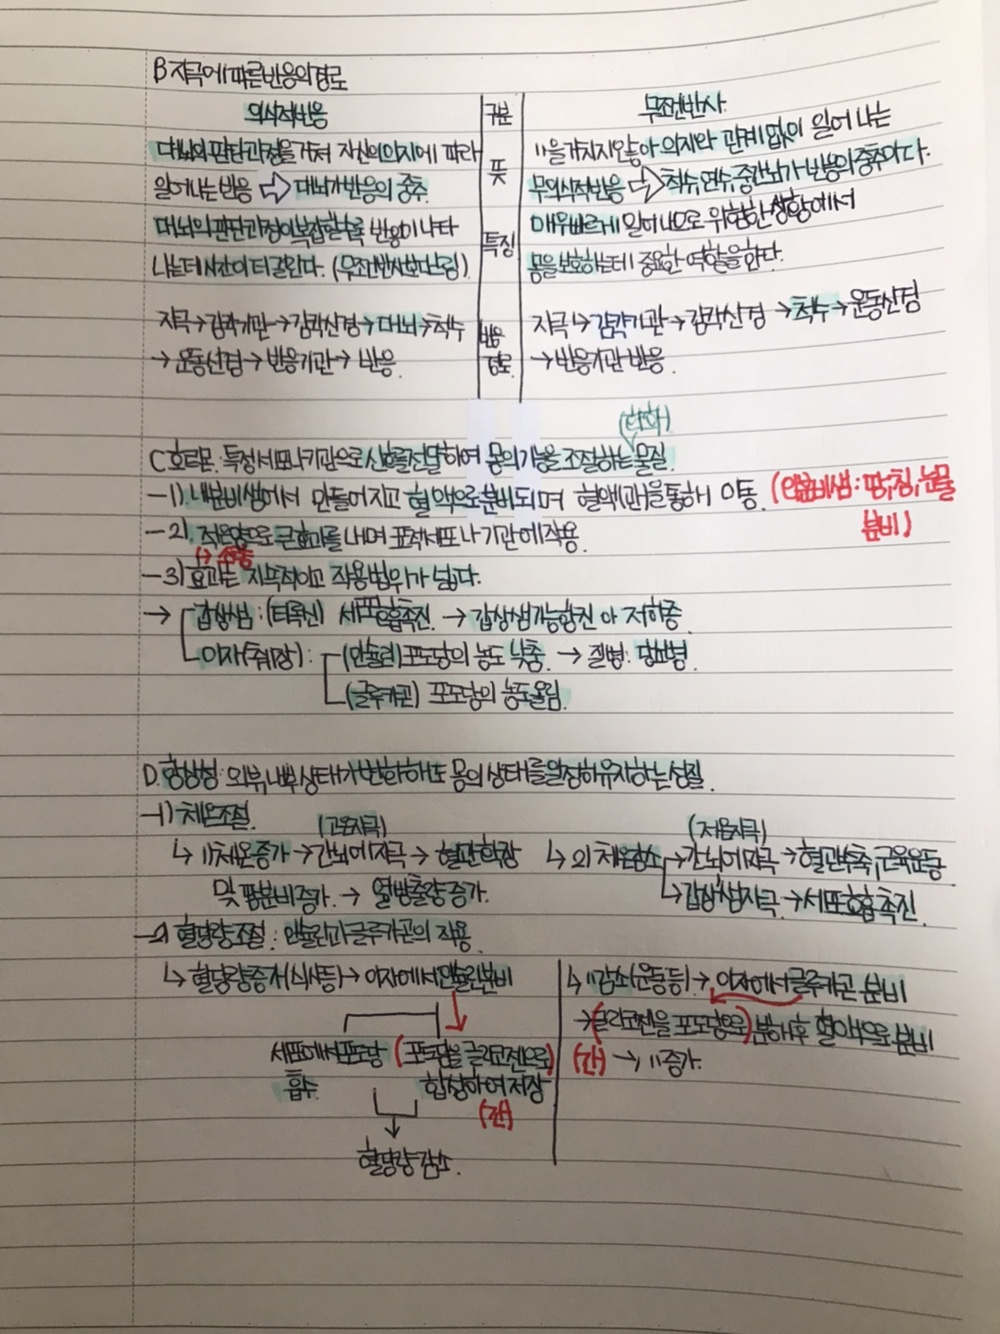 B 자극에 따른 반응의 경로
의식적 반응 구분 무조건 반사
대뇌의 판단 과정을 거쳐 자신의 의지에 따라
일어나는 반응 ⇨ 대뇌가 반응의 중추.
뜻
"을 거치지 않아 의지와 관계 없이 일어나는
무의식적 반응 ⇨ 척수, 연수, 중간뇌가 반응의 중추이다.
대뇌의 판단 과정이 복잡할수록 반응이 나타
나는데 시간이 더 걸린다. (무조건 반사보다 느림)
특징
매우 빠르게 일어나므로 위험한 상황에서
몸을 보호하는데 중요한 역할을 한다.
자극→감각기관→감각신경→대뇌→척수
→운동신경→반응기관→ 반응.
반응
경로
자극→감각기관→감각신경→척수→운동신경
→반응기관 반응.
(화학)
C 호르몬: 특정 세포나 기관으로 신호를 전달하여 몸의 기능을 조절하는 물질.
-1). 내분비샘에서 만들어지고 혈액으로 분비되며 혈액(관)을 통해 이동. (외분비샘: 땀,침,눈물
분비)
-2). 적은양으로 큰 효과를 내며 표적세포나 기관에 작용.
-3) 효과는 지속적이고 작용범위가 넓다.
→ 갑상샘: (티록신) 세포호흡촉진. → 갑상샘 기능 항진 or 저하증
이자(췌장): (인슐린) 포도당의 농도 낮춤. → 질병: 당뇨병.
(글루카곤) 포도당의 농도 올림.
D. 항상성: 외부, 내부 상태가 변화해도 몸의 상태를 일정하게 유지하는 성질.
-1) 체온조절.
(고온자극) (저온자극)
↳ 1) 체온 증가→간뇌에 자극→ 혈관 확장
및 땀분비 증가. → 열 방출량 증가.
↳ 2) 체온감소→간뇌에 자극→혈관수축,근육운동
→갑상샘 자극 →세포호흡 촉진.
-2) 혈당량 조절: 인슐린과 글루카곤의 작용.
↳ 혈당량 증가(식사 등)→ 이자에서 인슐린 분비
세포에서 포도당 (포도당을 글리코젠으로)
흡수. 합성하여 저장
(간)
혈당량 감소.
↳ "감소(운동 등) → 이자에서 글루카곤 분비
→(글리코젠을 포도당으로) 분해 후 혈액으로 분비
(간) → "증가.